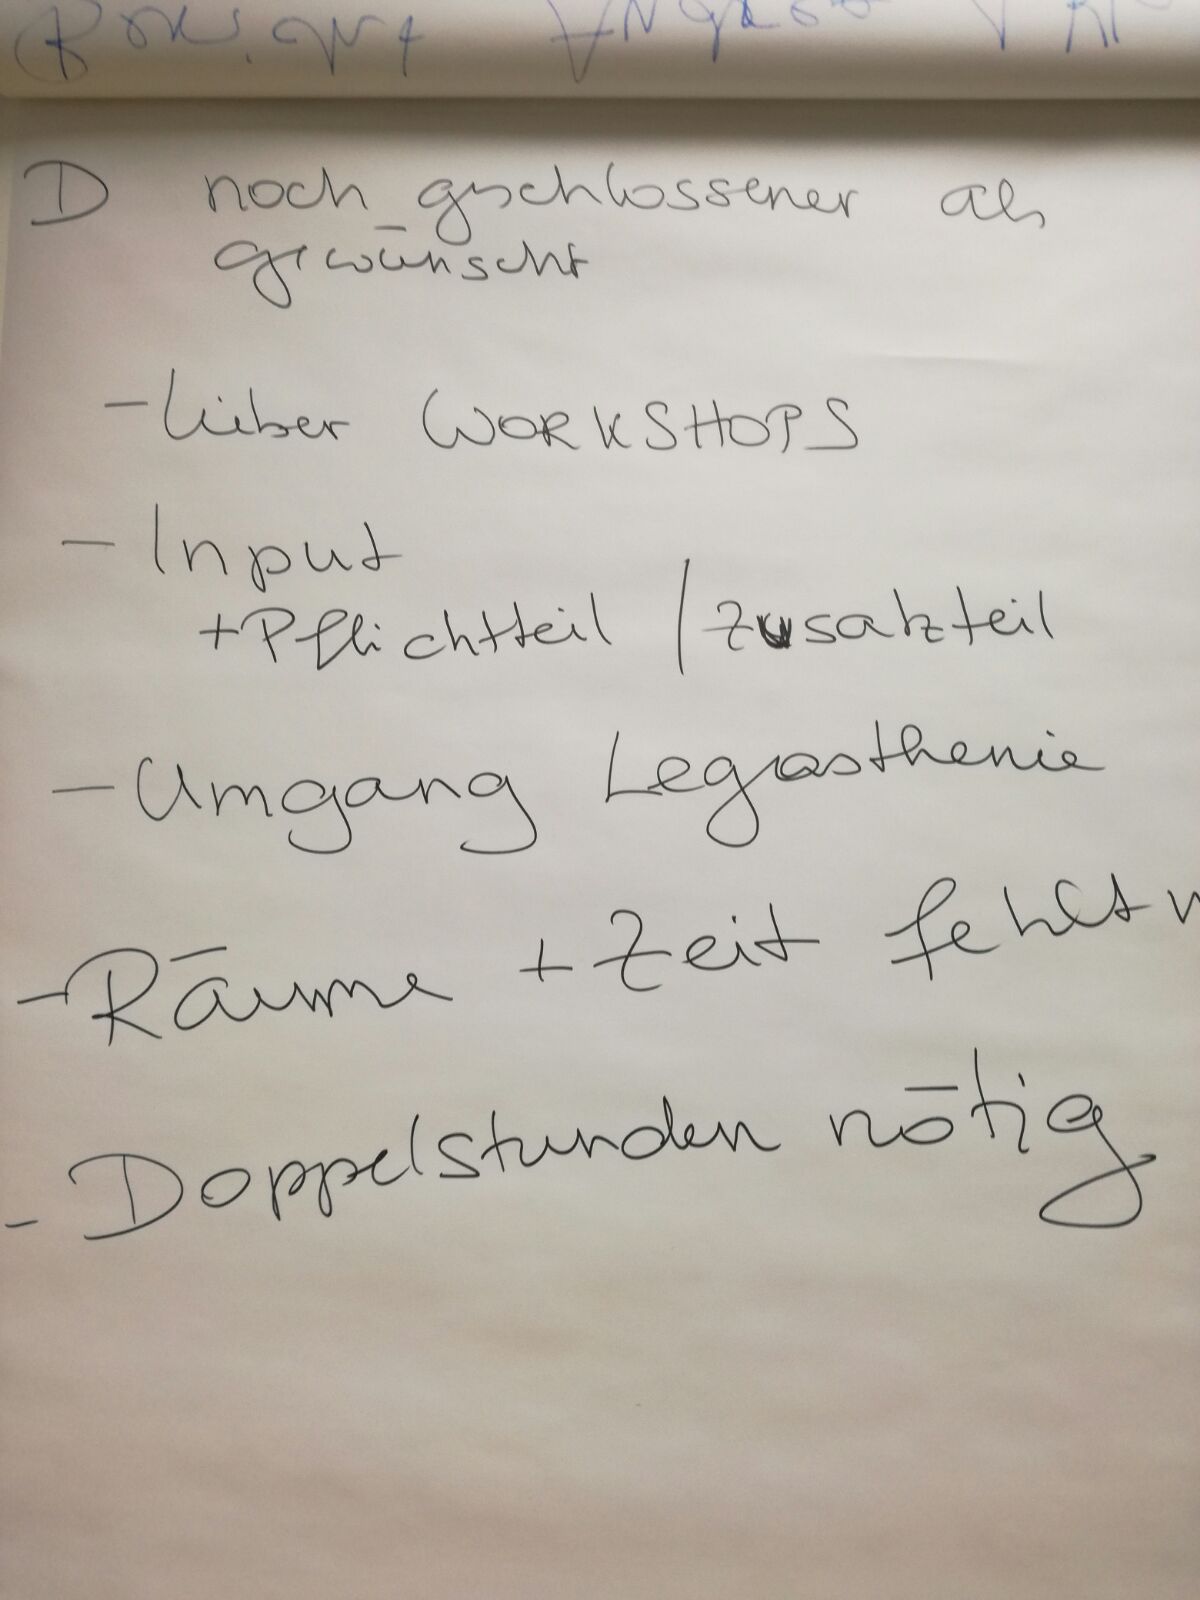 D noch geschlossener als
gewünscht
- lieber WORKSHOPS
- Input
+ Pflichtteil / Zusatzteil
- Umgang Legasthenie
- Räume + Zeit
- Doppelstunden nötig